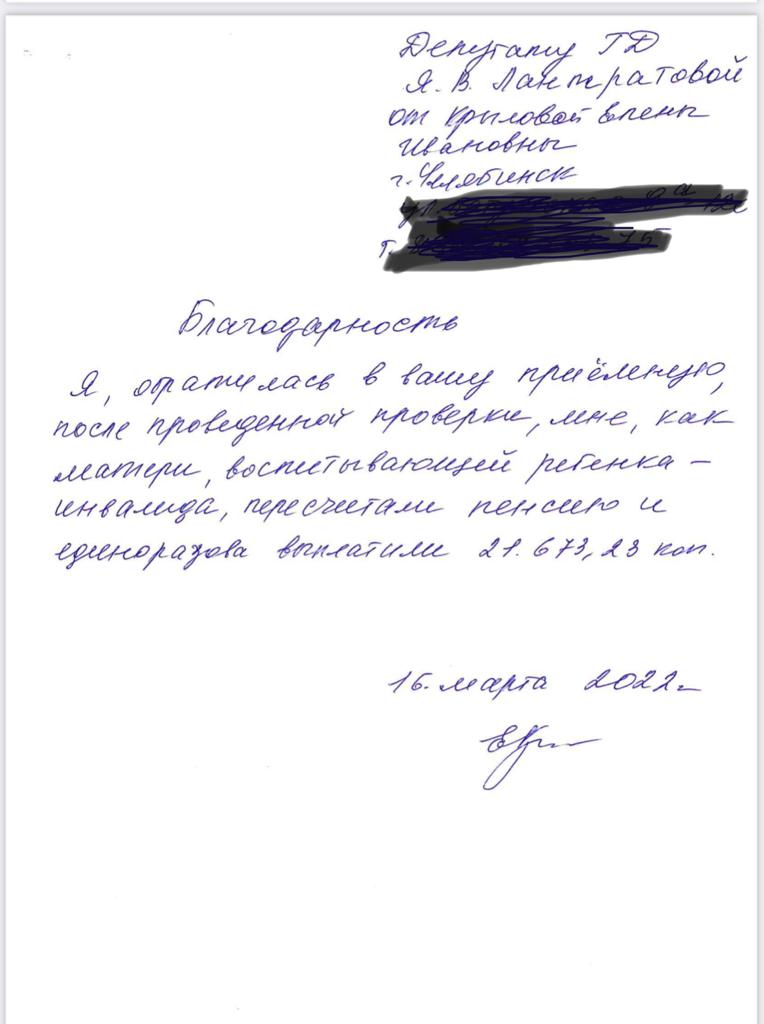 Депутату ГД
Я. В. Лантратовой
от Крыловой Елены
Ивановны
г. Челябинск
Благодарность
Я, обратилась в вашу приёмную,
после проведенной проверки, мне, как
матери, воспитывающей ребенка -
инвалида, пересчитали пенсию и
единоразова выплатили 21.673,23 коп.
16. марта 2022 г